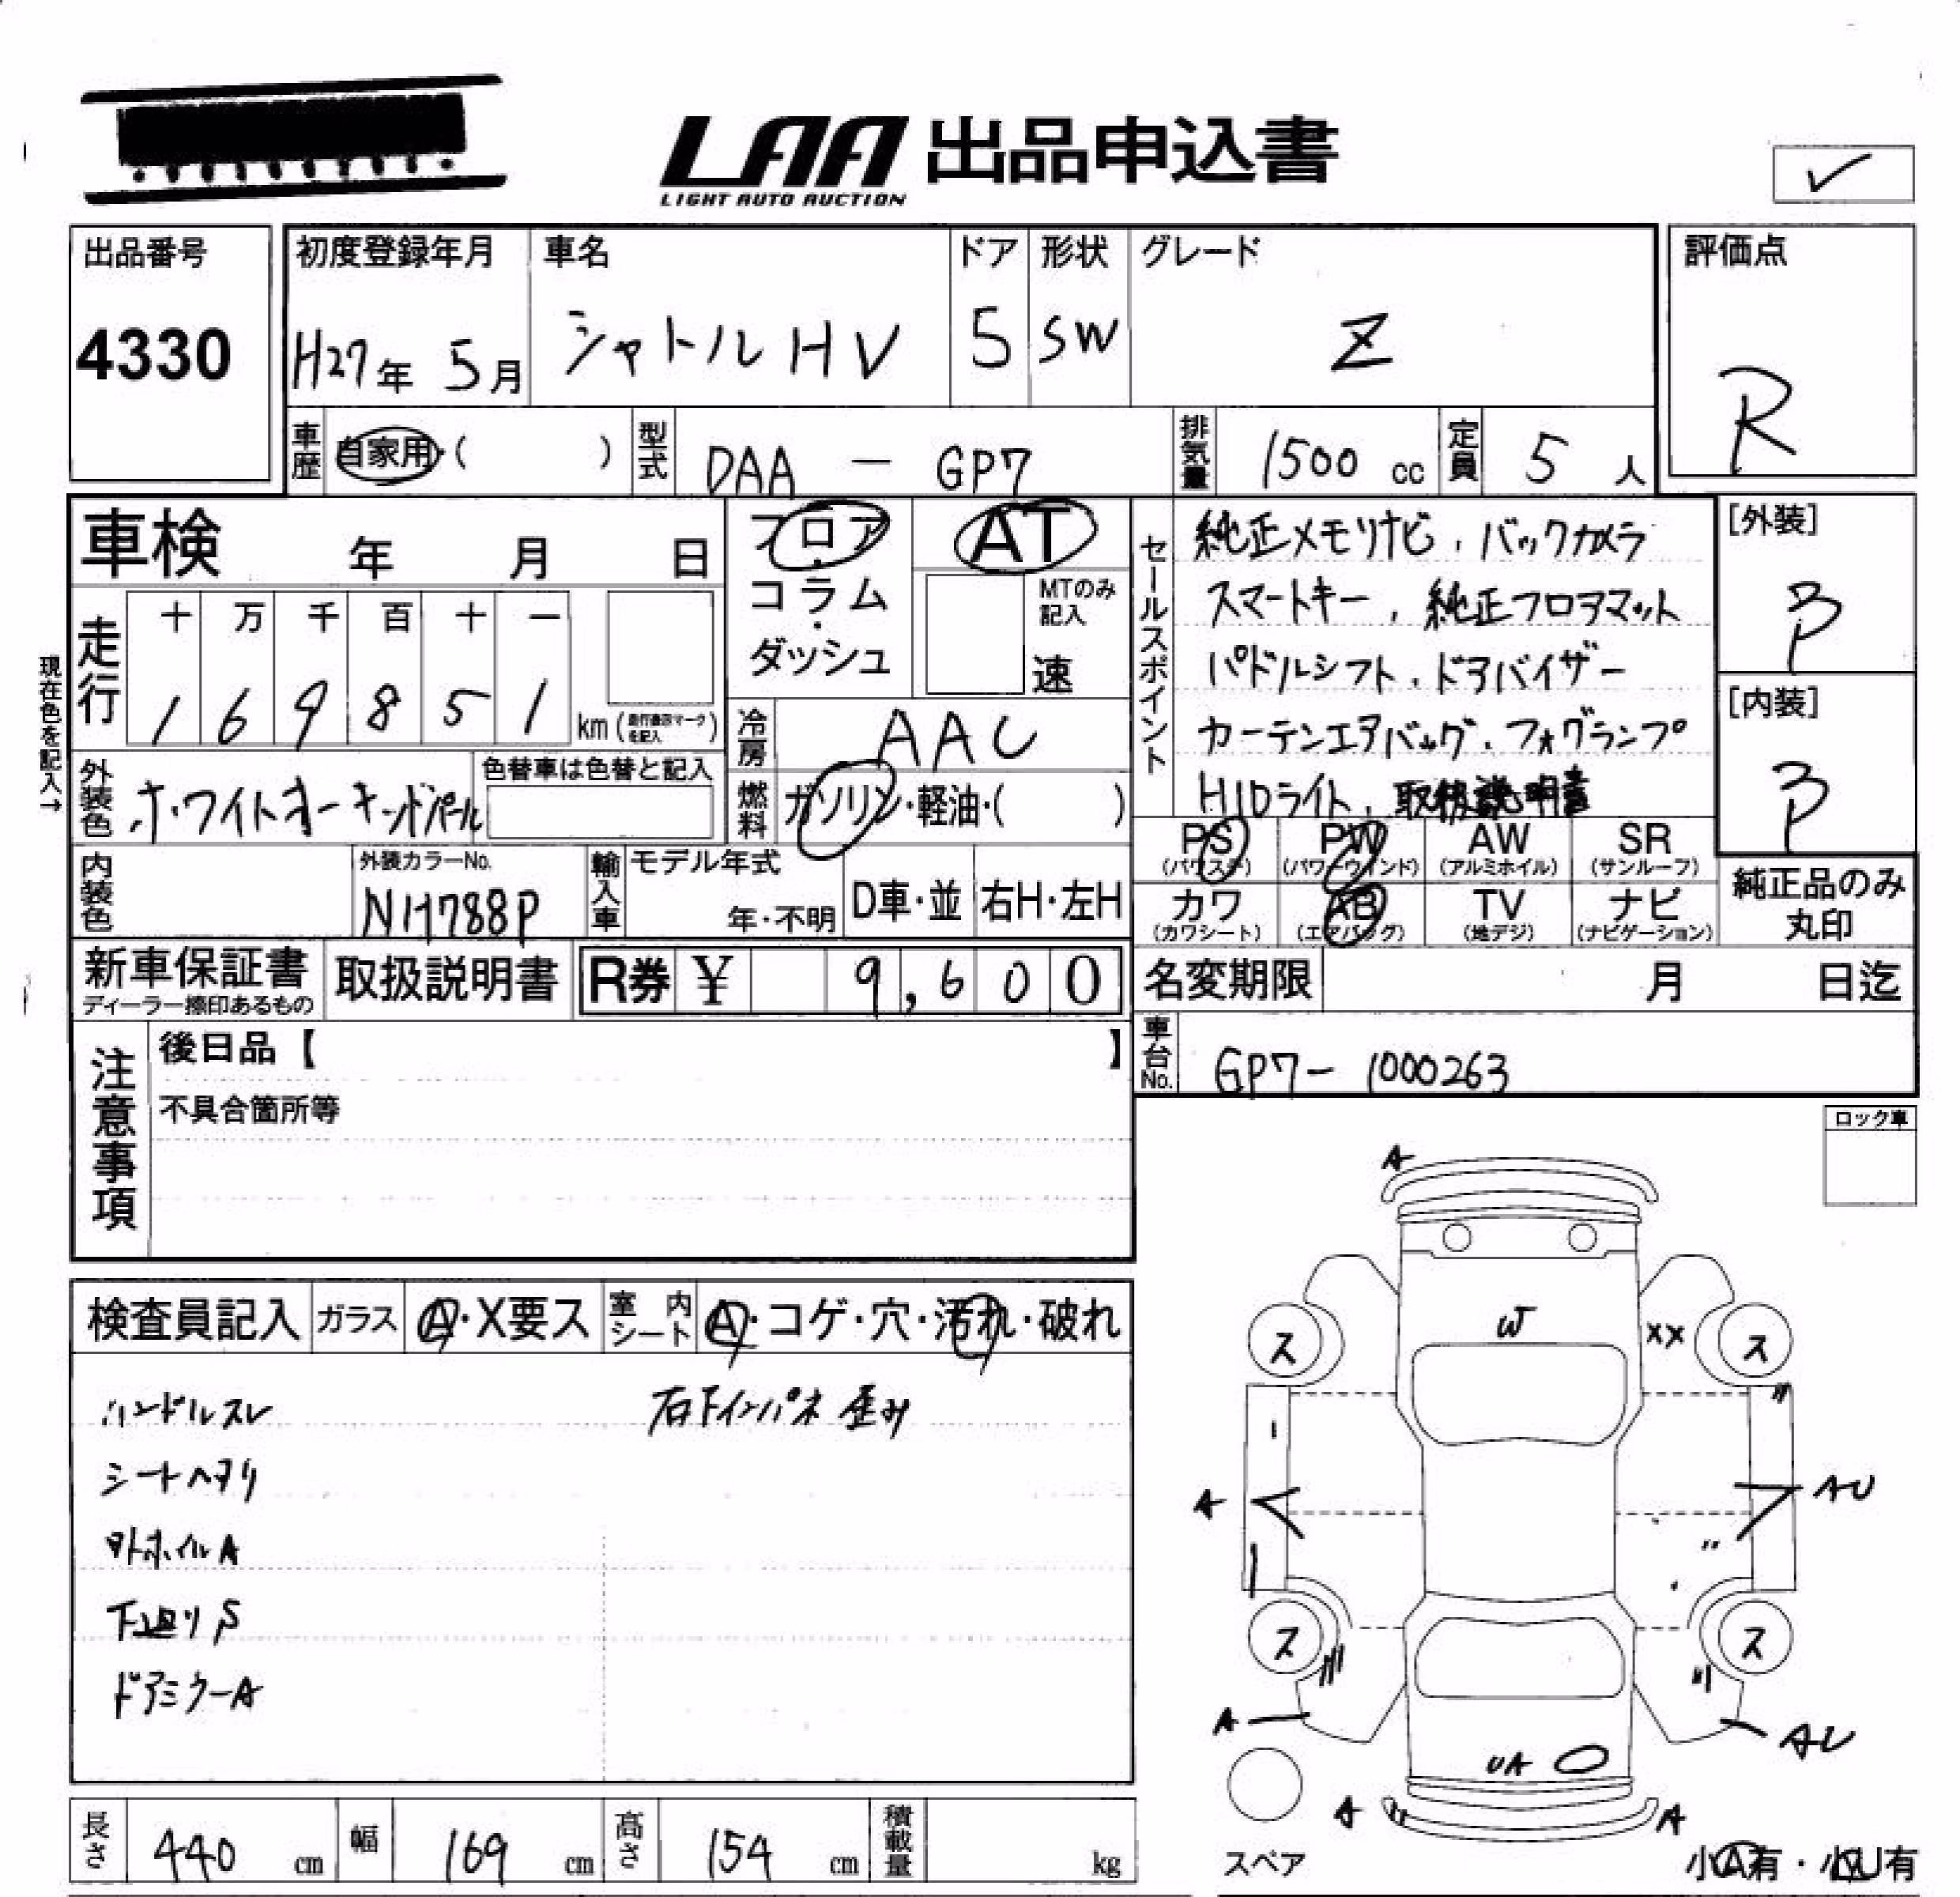 LAA 出品申込書
LIGHT AUTO AUCTION
出品番号
4330
初度登録年月
H27年 5月
車名
シャトルHV
ドア
5
形状
SW
グレード
Z
評価点
R
車歴 自家用・( )
型式 DAA - GP7
排気量 1500 cc
定員 5 人
車検 年 月 日
フロア・コラム・ダッシュ
AT
MTのみ記入
速
現在色を記入→
走行
十 万 千 百 十 一
1 6 9 8 5 1 km (走行表示マークを記入)
冷房 AAC
外装色 ホワイトオーキッドパール
色替車は色替と記入
燃料 ガソリン・軽油・( )
内装色
外装カラーNo.
NH788P
輸入車
モデル年式
年・不明
D車・並
右H・左H
セールスポイント
純正メモリナビ, バックカメラ
スマートキー, 純正フロアマット
パドルシフト, ドアバイザー
カーテンエアバッグ, フォグランプ
HIDライト, 取扱説明書
[外装]
[内装]
PS (パワステ)
PW (パワーウインド)
AW (アルミホイル)
SR (サンルーフ)
カワ (カワシート)
AB (エアバッグ)
TV (地デジ)
ナビ (ナビゲーション)
純正品のみ丸印
新車保証書
ディーラー捺印あるもの
取扱説明書
R券 ¥ 9,600
名変期限 月 日迄
車台No. GP7- 1000263
注意事項
後日品【 】
不具合箇所等
ロック車
検査員記入
ガラス A・X要ス
室内シート A・コゲ・穴・汚れ・破れ
ハンドルスレ
右下インパネ歪み
シートヘタリ
タイヤホイルA
下廻りS
ドアミラーA
A
W
XX
ス
ス
A
AU
ス
ス
A
AU
UA
A
A
スペア
小A有・小U有
長さ 440 cm
幅 169 cm
高さ 154 cm
積載量 kg